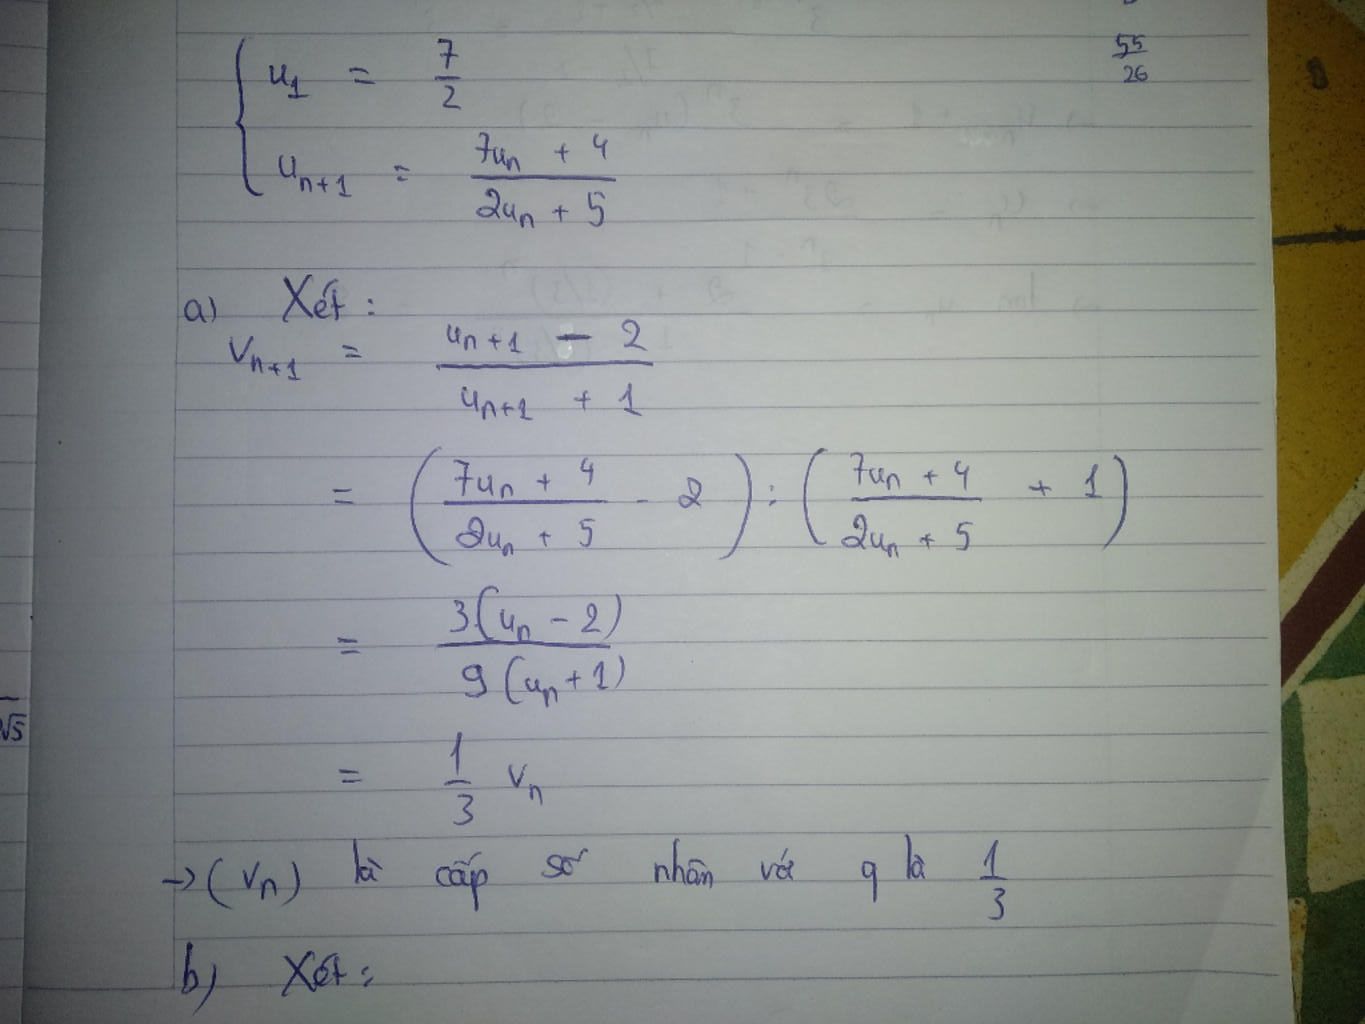 55/26
u₁ = 7/2
uₙ₊₁ = (7uₙ + 4)/(2uₙ + 5)
a) Xét :
vₙ₊₁ = (uₙ₊₁ − 2)/(uₙ₊₁ + 1)
= ((7uₙ + 4)/(2uₙ + 5) - 2) : ((7uₙ + 4)/(2uₙ + 5) + 1)
= 3(uₙ − 2)/9(uₙ + 1)
= 1/3 vₙ
→ (vₙ) là cấp số nhân với q là 1/3
b) Xét :
√5